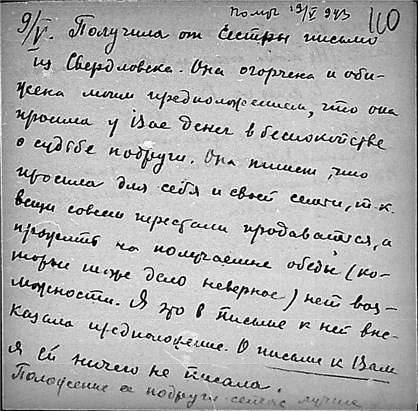 Получ 19/V 943
110
9/V. Получила от сестры письмо
из Свердловска. Она огорчена и оби-
жена моим предположением, что она
просила у Вас денег в беспокойстве
о судьбе подруги. Она пишет, что
просила для себя и своей семьи, т.к.
вещи совсем перестали продаваться, а
прожить на получаемые обеды (ко-
торые тоже дело неверное) нет воз-
можности. Я это в письме к ней вы-
казала предположение. О письме к Вам
я ей ничего не писала.
Положение её подруги сейчас лучше